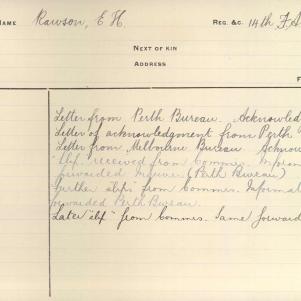 NAME Rawson, E H. REG. &C. 14th F.A
NEXT OF KIN
ADDRESS
F
Letter from Perth Bureau. Acknowled
Letter of acknowledgment from Perth
Letter from Melbourne Bureau Acknow
"slip" received from Commrs. Inform
forwarded Inquirer (Perth Bureau)
Further slip" from Commrs. Informat
forwarded Perth Bureau.
Later "slip" from Commrs. Same forward